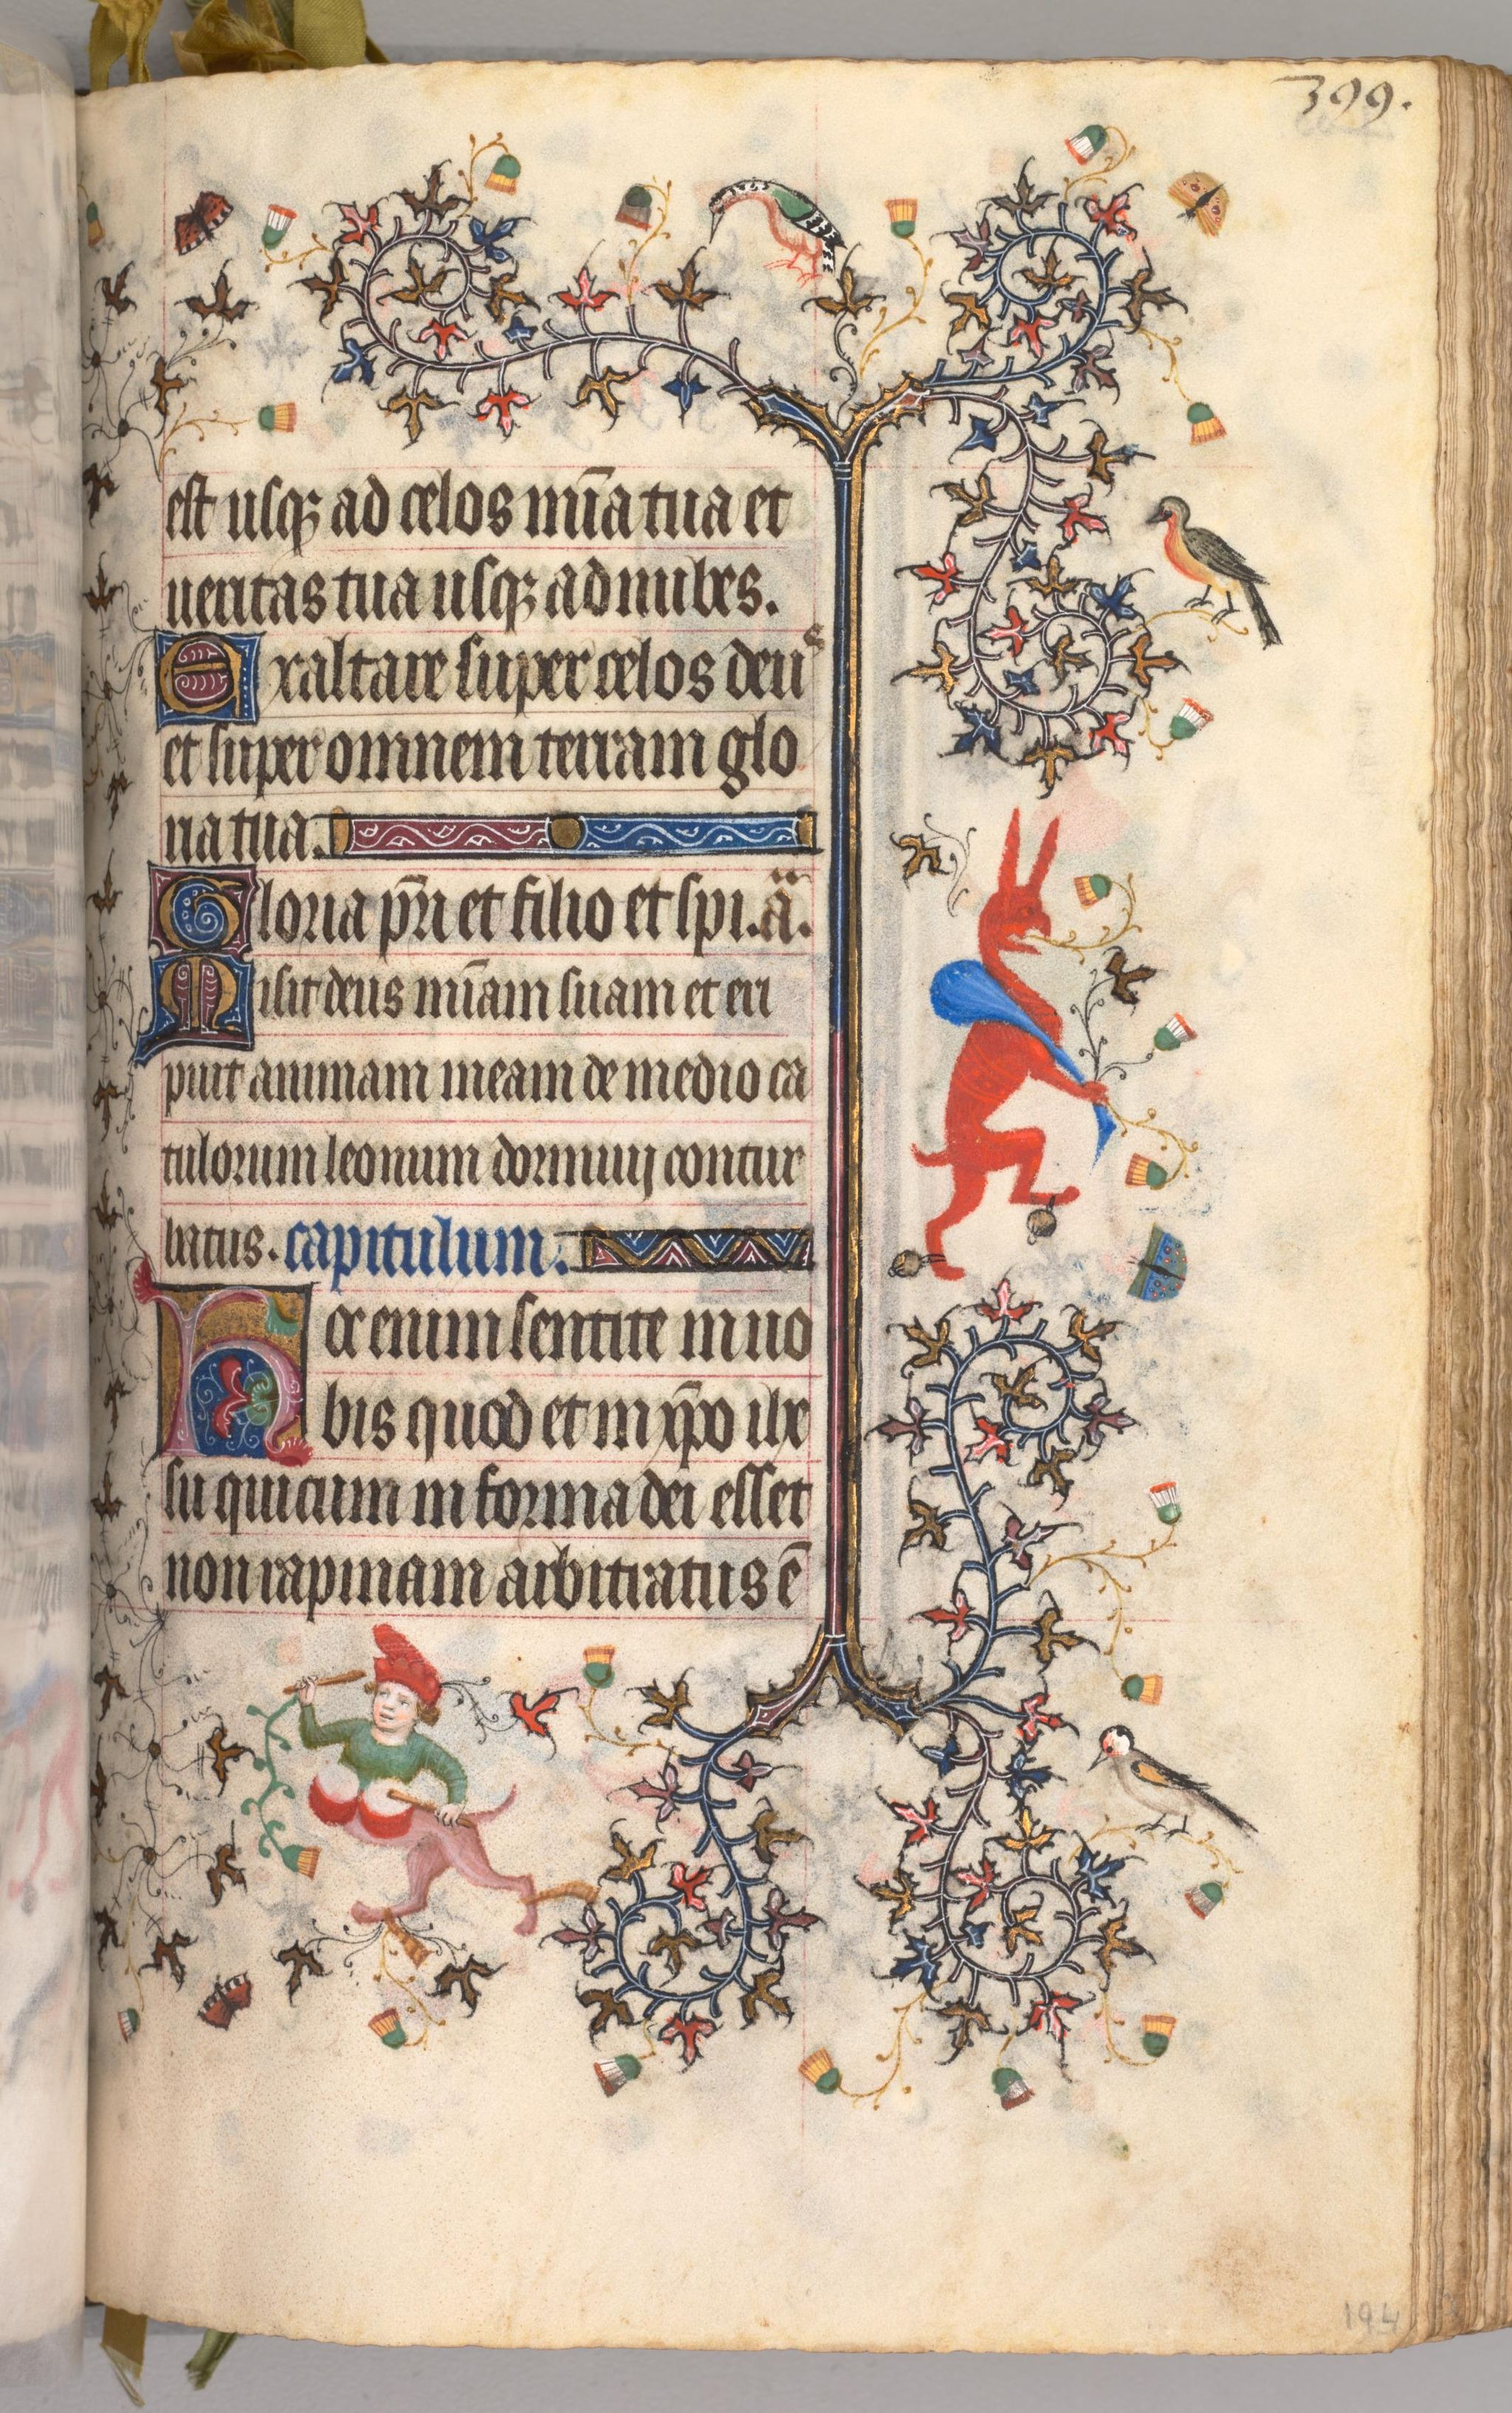 399.
est usq; ad celos mīa tua et
ueritas tua usq; ad nubes.
Exaltare super celos deus
et super omnem terram glo
ria tua.
Gloria p̄ri et filio et spi. ā.
Misit deus mīam suam et eri
puit animam meam de medio ca
tulorum leonum dormiuij contur
batus. capitulum.
Hoc enim sentite in uo
bis quod et in xp̄o ihe
su qui cum in forma dei esset
non rapinam arbitratus ē
194